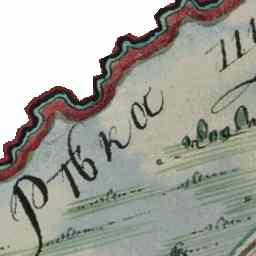 рѣка Ш